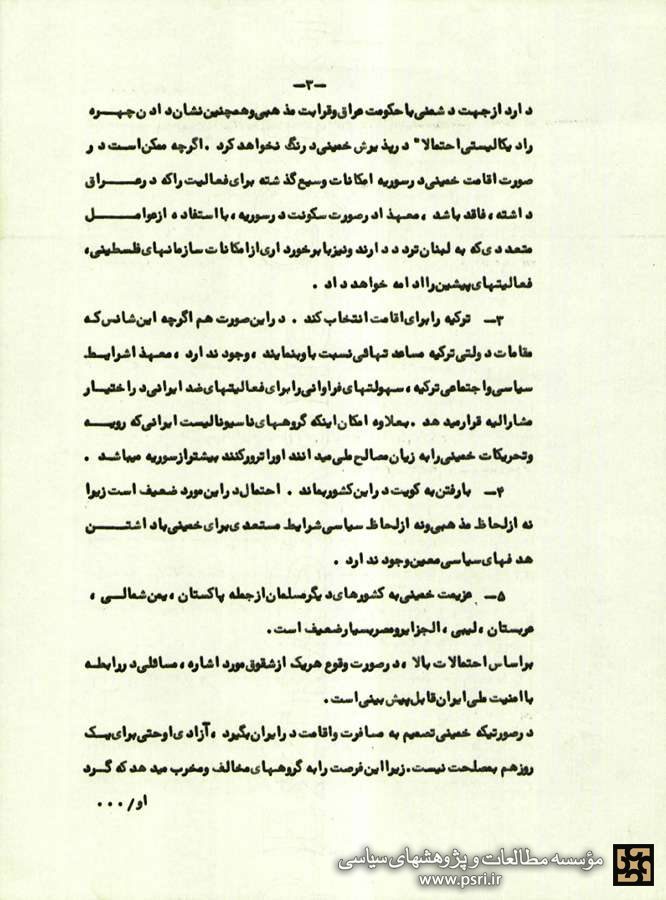 -۳-
دارد ازجهت دشمنی باحکومت عراق وقرابت مذهبی وهمچنین نشان دادن چهره
رادیکالیستی احتمالا" درپذیرش خمینی درنگ نخواهد کرد . اگرچه ممکن است در
صورت اقامت خمینی درسوریه امکانات وسیع گذشته برای فعالیت راکه درعراق
داشته، فاقد باشد ، معهذا درصورت سکونت درسوریه، با استفاده ازعوامل
متعددی که به لبنان تردد دارند ونیزبابرخورداری ازامکانات سازمانهای فلسطینی،
فعالیتهای پیشین را ادامه خواهد داد .
۳- ترکیه را برای اقامت انتخاب کند . دراین صورت هم اگرچه این شانس که
مقامات دولتی ترکیه مساعدتهائی نسبت باوبنمایند ، وجود ندارد ، معهذا شرایط
سیاسی واجتماعی ترکیه، سهولتهای فراوانی رابرای فعالیتهای ضد ایرانی دراختیار
مشارالیه قرارمیدهد . بعلاوه امکان اینکه گروههای ناسیونالیست ایرانی که رویه
وتحریکات خمینی رابه زیان مصالح ملی میدانند اوراترورکنند بیشترازسوریه میباشد .
۴- بارفتن به کویت دراین کشوربماند . احتمال دراین مورد ضعیف است زیرا
نه ازلحاظ مذهبی ونه ازلحاظ سیاسی شرایط مستعدی برای خمینی باداشتن
هدفهای سیاسی معین وجود ندارد .
۵- عزیمت خمینی به کشورهای دیگرمسلمان ازجمله پاکستان ، یمن شمالی ،
عربستان ، لیبی ، الجزایرومصربسیارضعیف است .
براساس احتمالات بالا ، درصورت وقوع هریک ازشقوق مورد اشاره ، مسائلی دررابطه
با امنیت ملی ایران قابل پیش بینی است .
درصورتیکه خمینی تصمیم به مسافرت واقامت درایران بگیرد ، آزادی اوحتی برای یک
روزهم بمصلحت نیست . زیرا این فرصت رابه گروههای مخالف ومخرب میدهد که گرد
او/ . . .
مؤسسه مطالعات و پژوهشهای سیاسی
www.psri.ir